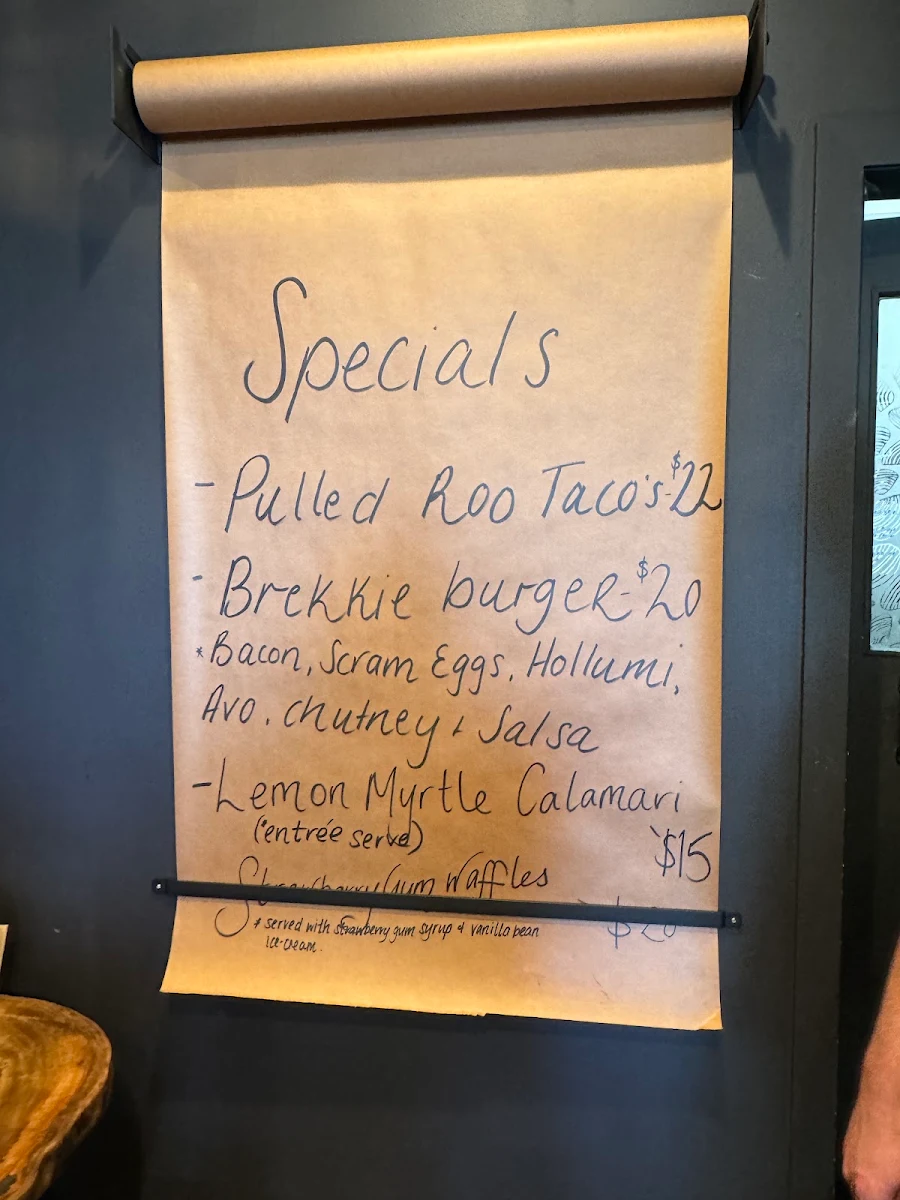 Specials
- Pulled Roo Taco's - $22
- Brekkie burger - $20
* Bacon, Scram Eggs, Hollumi,
Avo, Chutney & Salsa
- Lemon Myrtle Calamari
(entrée serve) $15
Strawberry Gum Waffles
$20
* served with strawberry gum syrup & vanilla bean
ice-cream.